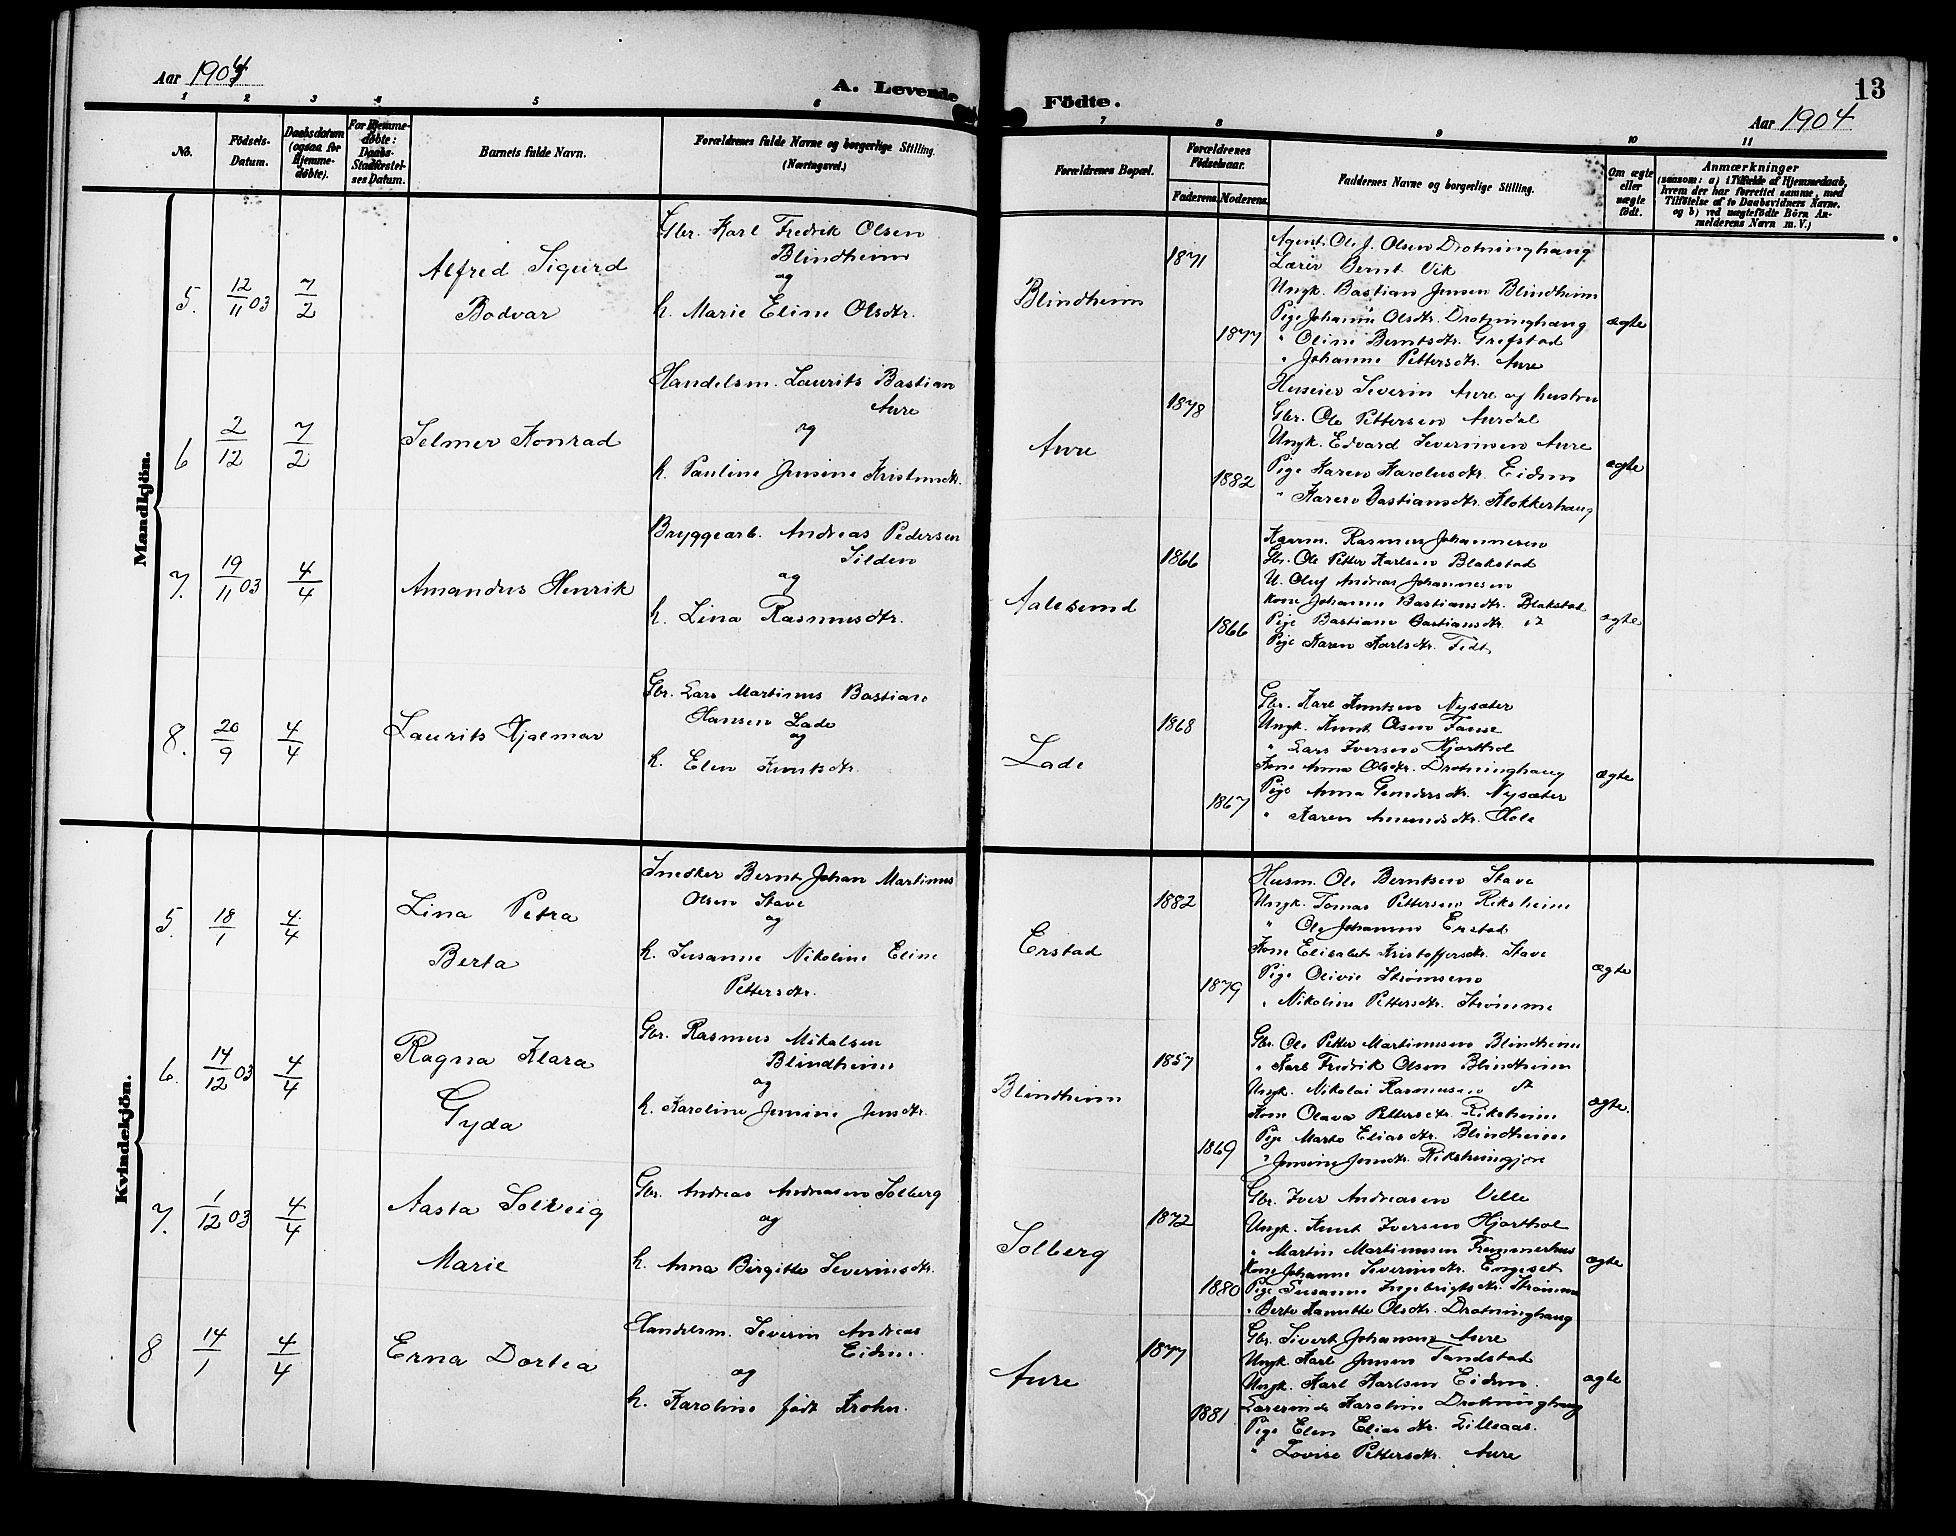 Aar 1904
A. Levende
1 2 3 4 5 6
No.
Födsels-
Datum.
Daabsdatum
(ogsaa for
Hjemme-
døbte).
For Hjemme-
døbte:
Daabs-
Stadfæstel-
ses Datum.
Barnets fulde Navn.
Forældrenes fulde Navne og borgerlige Stilling.
(Næringsvei.)
Mandkjön.
5. 12/11 03 7/2
Alfred Sigurd
Bodvar
Gbr. Karl Fredrik Olsen
Blindheim
og
h. Marie Eline Olsdtr.
6 2/12 7/2
Selmer Konrad
Handelsm. Laurits Bastian
Aure
og
h. Pauline Jensine Kristensdtr.
7. 19/11 03 4/4
Amandus Henrik
Bryggearb. Andreas Pedersen
Silden
og
h. Lina Rasmusdtr.
8. 20/9 4/4
Laurits Hjalmar
Gbr. Lars Martinus Bastian
Hansen Lade
og
h. Elen Knutsdtr.
Kvindekjön.
5. 18/1 4/4
Lina Petra
Berta
Snedker Bernt Johan Martinus
Olsen Stave
og
h. Susanne Nikoline Eline
Pettersdtr.
6. 14/12 03 4/4
Ragna Klara
Gyda
Gbr. Rasmus Mikalsen
Blindheim
og
h. Karoline Jensine Jensdtr.
7. 1/12 03 4/4
Aasta Solveig
Marie
Gbr. Andreas Andreasen Solberg
og
h. Anna Birgitte Severinsdtr.
8 14/1 4/4
Erna Dortea
Handelsm. Severin Andreas
Eidem.
og
h. Karoline født Krohn.
13
Födte.
Aar 1904
7 8 9 10 11
Forældrenes Bopæl.
Forældrenes
Födselsaar.
Faderens. Moderens.
Faddernes Navne og borgerlige Stilling.
Om ægte
eller
uægte
födt.
Anmærkninger
(saasom: a) i Tilfælde af Hjemmedaab,
hvem der har forrettet samme, med
Tilföielse af to Daabsvidners Navne.
og b) ved uægtefödte Börn An-
melderens Navn m. V.)
Blindheim
1871
1877
Agent. Ole J. Olsen Drotninghaug
Lærer Bernt Vik
Ungk. Bastian Jensen Blindheim
Pige Johanne Olsdtr. Drotninghaug
" Oline Berntsdtr. Grefstad
" Johanne Pettersdtr. Aure
ægte
Aure
1878
1882
Huseier Severin Aure og hustru
Gbr. Ole Pettersen Aurdal
Ungk. Edvard Severinsen Aure
Pige Karen Karolusdtr. Eidem
" Karen Bastiansdtr. Klokkerhaug
ægte
Aalesund
1866
1866
Kaarm. Rasmus Johannesen
Gbr. Ole Petter Karlsen Blakstad
U. Oluf Andreas Johannesen
Kone Johanne Bastiansdtr. Blakstad
Pige Bastiane Bastiansdtr.
Pige Karen Karlsdtr. Fedt
ægte
Lade
1868
1867
Gbr. Karl Knutsen Nysæter
Ungk. Knut Olsen Fause
" Lars Iversen Hjorthol
Kone Anna Olsdtr. Drotninghaug
Pige Anna Gundersdtr. Nysæter
" Karen Amundsdtr. Hole
Ægte
Erstad
1882
1879
Husm. Ole Berntsen Stave
Ungk. Tomas Pettersen Riksheim
" Ole Johannes Erstad
Kone Elisabet Kristoffersdtr. Stave
Pige Olivie Strømsem
" Nikoline Pettersdtr. Strømme
Ægte
Blindheim
1857
1869
Gbr. Ole Petter Martinussen Blindheim
" Karl Fredrik Olsen Blindheim
Ungk. Nikolai Rasmussen dt
Kone Olava Pettersdtr. Riksheim
Pige Marte Eliasdtr. Blindheim
" Jensine Jensdtr. Riksheimgjære
Ægte.
Solberg
1872
1880
Gbr. Iver Andreasen Velle
Ungk. Knut Iversen Hjorthol
" Martin Martinusen Frammerhus
Kone Johanne Severinsdtr. Engeset
Pige Susanne Ingebrigtsdtr. Strømme
" Berte Hanette Olsdtr. Drotninghaug
ægte
Aure
1877
1881
Gbr. Sivert Johansen Aure
Ungk. Karl Jensen Tandstad
Ungk. Karl Karlsen Eidem.
Lærerinde Karoline Drotninghaug
Pige Elen Eliasdtr. Lillesaas.
" Lovise Pettersdtr. Aure
ægte